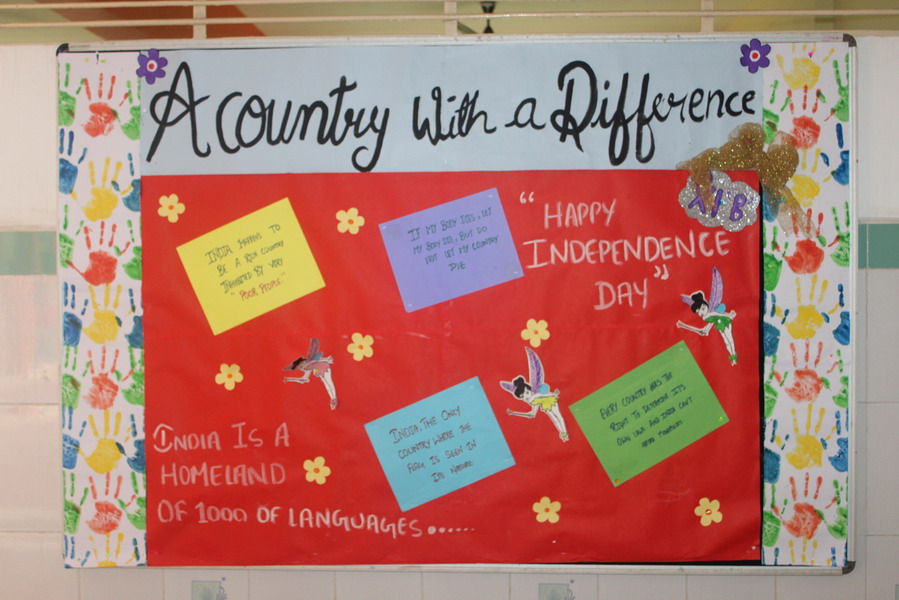 A country with a Difference
XI B
INDIA HAPPENS TO
BE A RICH COUNTRY
INHABITED BY VERY
"POOR PEOPLE"
IF MY BODY DIES, LET
MY BODY DIE, BUT DO
NOT LET MY COUNTRY
DIE
"HAPPY
INDEPENDENCE
DAY"
INDIA, THE ONLY
COUNTRY WHERE THE
FLAG IS SEEN IN
ITS NATURE
EVERY COUNTRY HAS THE
RIGHT TO DETERMINE ITS
OWN LAWS AND INDIA CAN'T
INDIA IS A
HOMELAND
OF 1000 OF LANGUAGES......